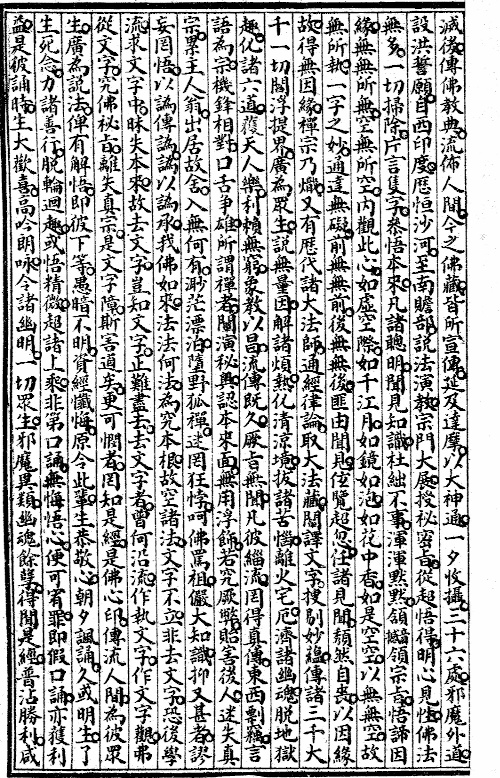 滅後傳佛教典流佈人間今之佛藏皆所宣傳延及達摩以大神通一夕收攝三十六處邪魔外道
設洪誓願自西印度歷恒沙河至南贍部說法演教宗門大展授秘密旨從超悟得明心見性佛法
無多一切掃除片言隻字叅悟本來凡諸聰明聞見知識杜絀不事渾渾默默領攝領宗旨悟諦因
緣無無所無空無所空內觀此心如虛空際如千江月如鏡如池如花中香如是空空以無無空故
無所執一字之妙通達無礙前無無前後無無後匪由聞見位覽超忽任諸見聞頹然自喪以因緣
故得無因緣禪宗乃熾又有歷代諸大法師通經律論取大法藏闡譯文字搜剔妙蘊傳諸三千大
千一切閻浮提界廣為眾生說無量因解諸煩熱化清涼境拔諸苦惱離火宅厄濟諸幽魂脫地獄
趣化諸六道護天人樂利賴無窮象教以昌流傳既久厥旨無聞凡彼緇流罔得真傳東西剽竊言
語為宗機鋒相對口舌爭雄所謂禪者闡演秘輿認本來面無用浮飾若究厥獘貽害後人迷失真
宗累主人翁出居故舍入無何有渺茫漂泊墮野狐禪迷罔狂悖呵佛罵祖儼大知識抑又甚者謬
妄罔悟以譌傳譌以譌承我佛如來法法何法為究本根故空諸法文字不立非去文字恐後學
流求文字中昧失本來故去文字豈知文字正難盡去去文字者曾何沿流作執文字作文字觀弗
從文字究佛秘旨離失真宗是文字障斯害道矣更可憫者罔知是經是佛心印傳流人間為彼眾
生廣為說法俾有解悟即彼下等愚暗不明資經懺悔原今此輩生恭敬心朝夕諷誦久或明生了
生死念力諸善行脫輪迴趣或悟精微超諸上乘非第口誦無悔悟心便可宥罪即假口誦亦獲利
益是彼誦時生大歡喜高吟朗咏令諸幽明一切眾生邪魔異類幽魂餘孽得聞是經普沾勝利咸